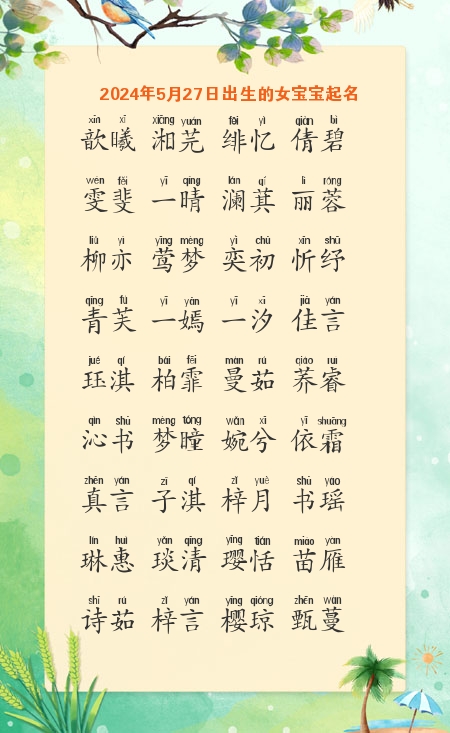 2024年5月27日出生的女宝宝起名
xīn xī xiāng yuán fēi yì qiàn bì
歆曦 湘芫 绯忆 倩碧
wén fěi yī qíng lán qí lì róng
雯斐 一晴 澜萁 丽蓉
liǔ yì yīng mèng yì chū xīn shū
柳亦 莺梦 奕初 忻纾
qīng fú yī yān yī xī jiā yán
青芙 一嫣 一汐 佳言
jué qí bǎi fēi màn rú qiáo ruì
珏淇 柏霏 曼茹 荞睿
qìn shū mèng tóng wǎn xī yī shuāng
沁书 梦瞳 婉兮 依霜
zhēn yán zǐ qí zǐ yuè shū yáo
真言 子淇 梓月 书瑶
lín huì yǎn qīng yīng tián miáo yàn
琳惠 琰清 璎恬 苗雁
shī rú zǐ yán yīng qióng zhēn wàn
诗茹 梓言 樱琼 甄蔓